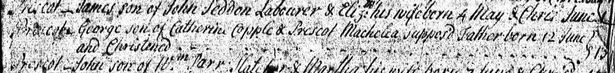 Prescot - James son of John Seddon Labourer & Eliz: his wife born 4 May & Chris: June
Prescot - George son of Catherine Copple & Prescot suppos'd Father born 12 June
and Christened
Prescot - John son of Wm Parr & Martha his wife born June &